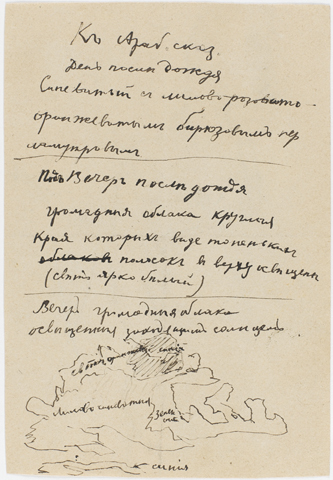 Къ Араб. сказ.
День посли дождя
Синеватый съ лилово-розовато-
оранжеватымъ бирюзовымъ пер
ламутровымъ
Вечеръ послѣ дождя
громадныя облака круглыя
края которыхъ виде тоненькая
облаков полосокъ въ верху освѣщены
(свѣтъ ярко бѣлый)
Вечеръ громадныя облака
освѣщенныя заходящимъ солнцемъ
синія
Лилово синеватыя
синія